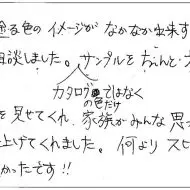 塗る色のイメージがなかなか出来ず
相談しました。サンプルをちゃんと・
カタログではなく
の色だけ
を見せてくれ、家族がみんな思っ
上げてくれました。何よりスピ
かったです!!